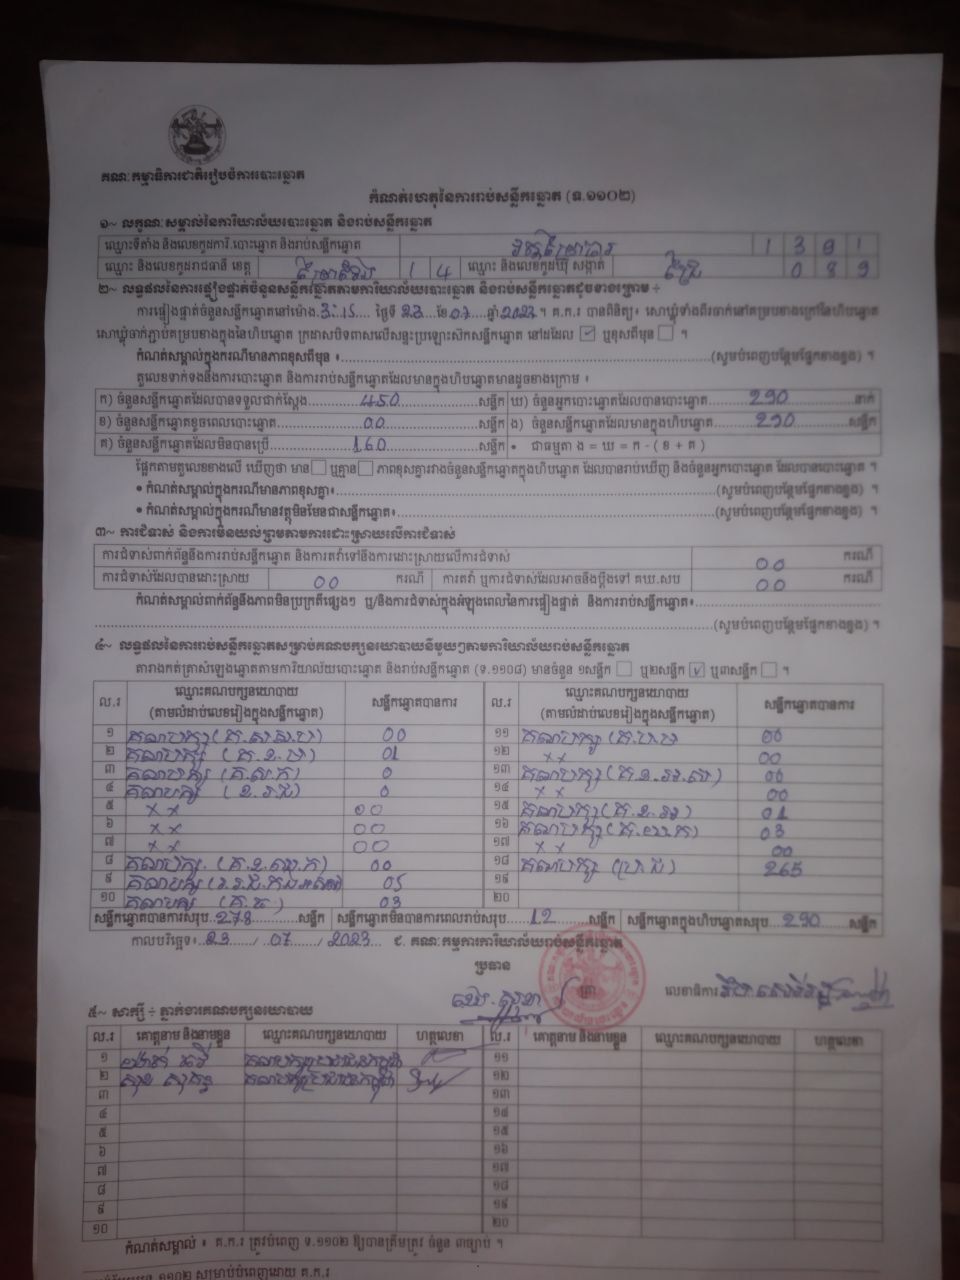 គណៈកម្មាធិការជាតិរៀបចំការបោះឆ្នោត
កំណត់ហេតុនៃការរាប់សន្លឹកឆ្នោត (ទ.១១០២)
១~ លក្ខណៈសម្គាល់នៃការិយាល័យបោះឆ្នោត និងរាប់សន្លឹកឆ្នោត
ឈ្មោះទីតាំង និងលេខកូដការិ.បោះឆ្នោត និងរាប់សន្លឹកឆ្នោត 1 3 9 1
ឈ្មោះ និងលេខកូដរាជធានី ខេត្ត ព្រៃវែង 1 4 ឈ្មោះ និងលេខកូដឃុំ សង្កាត់ 0 8 9
២~ លទ្ធផលនៃការផ្ទៀងផ្ទាត់ចំនួនសន្លឹកឆ្នោតតាមការិយាល័យបោះឆ្នោត និងរាប់សន្លឹកឆ្នោតដូចខាងក្រោម ÷
ការផ្ទៀងផ្ទាត់ចំនួនសន្លឹកឆ្នោតនៅម៉ោង 3:15 ថ្ងៃទី 23 ខែ 07 ឆ្នាំ 2023 ។ គ.ក.រ បានពិនិត្យ៖ សោឃ្លុំទាំងពីរចាក់នៅគម្របខាងក្រៅនៃហិបឆ្នោត
សោឃ្លុំចាក់ភ្ជាប់គម្របខាងក្នុងនៃហិបឆ្នោត ក្រដាសបិទពាសលើសន្ទះប្រឡោះស៊កសន្លឹកឆ្នោត នៅដដែល ✓ ឬខុសពីមុន ។
កំណត់សម្គាល់ក្នុងករណីមានភាពខុសពីមុន ៖ (សូមបំពេញបន្ថែមផ្នែកខាងខ្នង) ។
តួលេខទាក់ទងនឹងការបោះឆ្នោត និងការរាប់សន្លឹកឆ្នោតដែលមានក្នុងហិបឆ្នោតមានដូចខាងក្រោម ៖
ក) ចំនួនសន្លឹកឆ្នោតដែលបានទទួលជាក់ស្តែង 450 សន្លឹក ឃ) ចំនួនអ្នកបោះឆ្នោតដែលបានបោះឆ្នោត 290 នាក់
ខ) ចំនួនសន្លឹកឆ្នោតខូចពេលបោះឆ្នោត 00 សន្លឹក ង) ចំនួនសន្លឹកឆ្នោតដែលមានក្នុងហិបឆ្នោត 290 សន្លឹក
គ) ចំនួនសន្លឹកឆ្នោតដែលមិនបានប្រើ 160 សន្លឹក • ជាធម្មតា ង = ឃ = ក - ( ខ + គ )
ផ្អែកតាមតួលេខខាងលើ ឃើញថា មាន ឬគ្មាន ភាពខុសគ្នារវាងចំនួនសន្លឹកឆ្នោតក្នុងហិបឆ្នោត ដែលបានរាប់ឃើញ និងចំនួនអ្នកបោះឆ្នោត ដែលបានបោះឆ្នោត ។
• កំណត់សម្គាល់ក្នុងករណីមានភាពខុសគ្នា៖ (សូមបំពេញបន្ថែមផ្នែកខាងខ្នង) ។
• កំណត់សម្គាល់ក្នុងករណីមានវត្ថុមិនមែនជាសន្លឹកឆ្នោត៖ (សូមបំពេញបន្ថែមផ្នែកខាងខ្នង) ។
៣~ ការជំទាស់ និងការមិនយល់ព្រមតាមការដោះស្រាយលើការជំទាស់
ការជំទាស់ពាក់ព័ន្ធនឹងការរាប់សន្លឹកឆ្នោត និងការតវ៉ាទៅនឹងការដោះស្រាយលើការជំទាស់ 00 ករណី
ការជំទាស់ដែលបានដោះស្រាយ 00 ករណី ការតវ៉ា ឬការជំទាស់ដែលអាចនឹងប្តឹងទៅ គឃ.សប 00 ករណី
កំណត់សម្គាល់ពាក់ព័ន្ធនឹងភាពមិនប្រក្រតីផ្សេងៗ ឬ/និងការជំទាស់ក្នុងអំឡុងពេលនៃការផ្ទៀងផ្ទាត់ និងការរាប់សន្លឹកឆ្នោត៖
(សូមបំពេញបន្ថែមផ្នែកខាងខ្នង) ។
៤~ លទ្ធផលនៃការរាប់សន្លឹកឆ្នោតសម្រាប់គណបក្សនយោបាយនីមួយៗតាមការិយាល័យរាប់សន្លឹកឆ្នោត
តារាងកត់ត្រាសំឡេងឆ្នោតតាមការិយាល័យបោះឆ្នោត និងរាប់សន្លឹកឆ្នោត (ទ.១១០៨) មានចំនួន ១សន្លឹក ឬ២សន្លឹក ✓ ឬ៣សន្លឹក ។
ល.រ ឈ្មោះគណបក្សនយោបាយ (តាមលំដាប់លេខរៀងក្នុងសន្លឹកឆ្នោត) សន្លឹកឆ្នោតបានការ ល.រ ឈ្មោះគណបក្សនយោបាយ (តាមលំដាប់លេខរៀងក្នុងសន្លឹកឆ្នោត) សន្លឹកឆ្នោតបានការ
១ គណបក្ស 00 ១១ គណបក្ស 00
២ គណបក្ស 01 ១២ x x 00
៣ គណបក្ស 0 ១៣ គណបក្ស 00
៤ គណបក្ស 0 ១៤ x x 00
៥ x x 00 ១៥ គណបក្ស 01
៦ x x 00 ១៦ គណបក្ស 03
៧ x x 00 ១៧ x x 00
៨ គណបក្ស 00 ១៨ គណបក្ស (ប្រ.ជ) 265
៩ គណបក្ស 05 ១៩
១០ គណបក្ស 03 ២០
សន្លឹកឆ្នោតបានការសរុប 278 សន្លឹក សន្លឹកឆ្នោតមិនបានការពេលរាប់សរុប 12 សន្លឹក សន្លឹកឆ្នោតក្នុងហិបឆ្នោតសរុប 290 សន្លឹក
កាលបរិច្ឆេទ៖ 23 / 07 / 2023 ជ. គណៈកម្មការការិយាល័យរាប់សន្លឹកឆ្នោត
ប្រធាន
ត្រា លេខាធិការ
៥~ សាក្សី ÷ ភ្នាក់ងារគណបក្សនយោបាយ
ល.រ គោត្តនាម និងនាមខ្លួន ឈ្មោះគណបក្សនយោបាយ ហត្ថលេខា ល.រ គោត្តនាម និងនាមខ្លួន ឈ្មោះគណបក្សនយោបាយ ហត្ថលេខា
១ គណបក្សប្រជាជនកម្ពុជា ១១
២ គណបក្សប្រជាជនកម្ពុជា ១២
៣ ១៣
៤ ១៤
៥ ១៥
៦ ១៦
៧ ១៧
៨ ១៨
៩ ១៩
១០ ២០
កំណត់សម្គាល់ ៖ គ.ក.រ ត្រូវបំពេញ ទ.១១០២ ឱ្យបានត្រឹមត្រូវ ចំនួន ៣ច្បាប់ ។
ទ.១១០២ សម្រាប់បំពេញដោយ គ.ក.រ